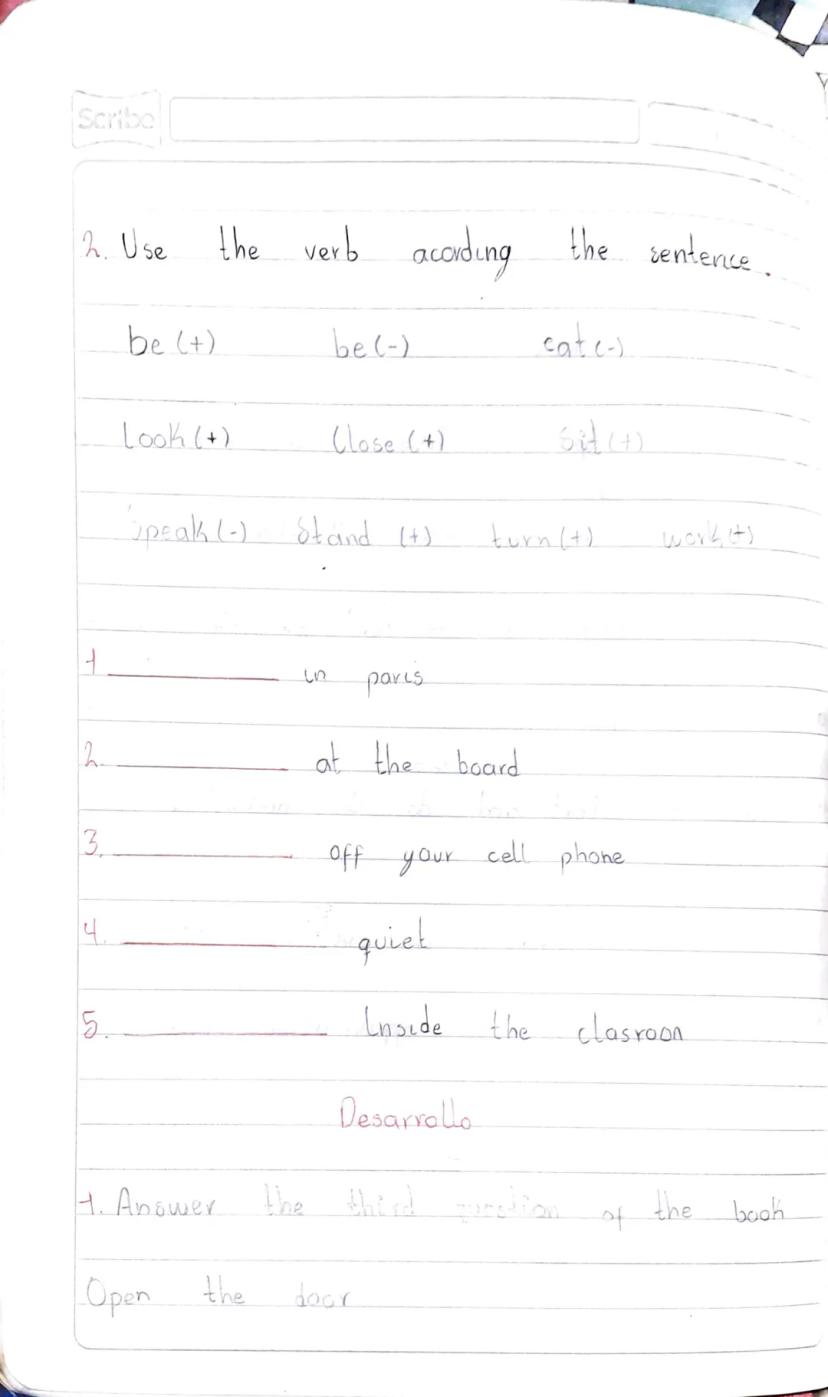 Scribe
2. Use the verb acording the sentence.
be (+) be (-) eat (-)
Look (+) Close (+) Sit (+)
Speak (-) Stand (+) turn (+) work (+)
1 in paris
2. at the board
3. off your cell phone
4. quiet
5. Inside the clasroon
Desarrollo
1. Answer the third of the book
Open the door